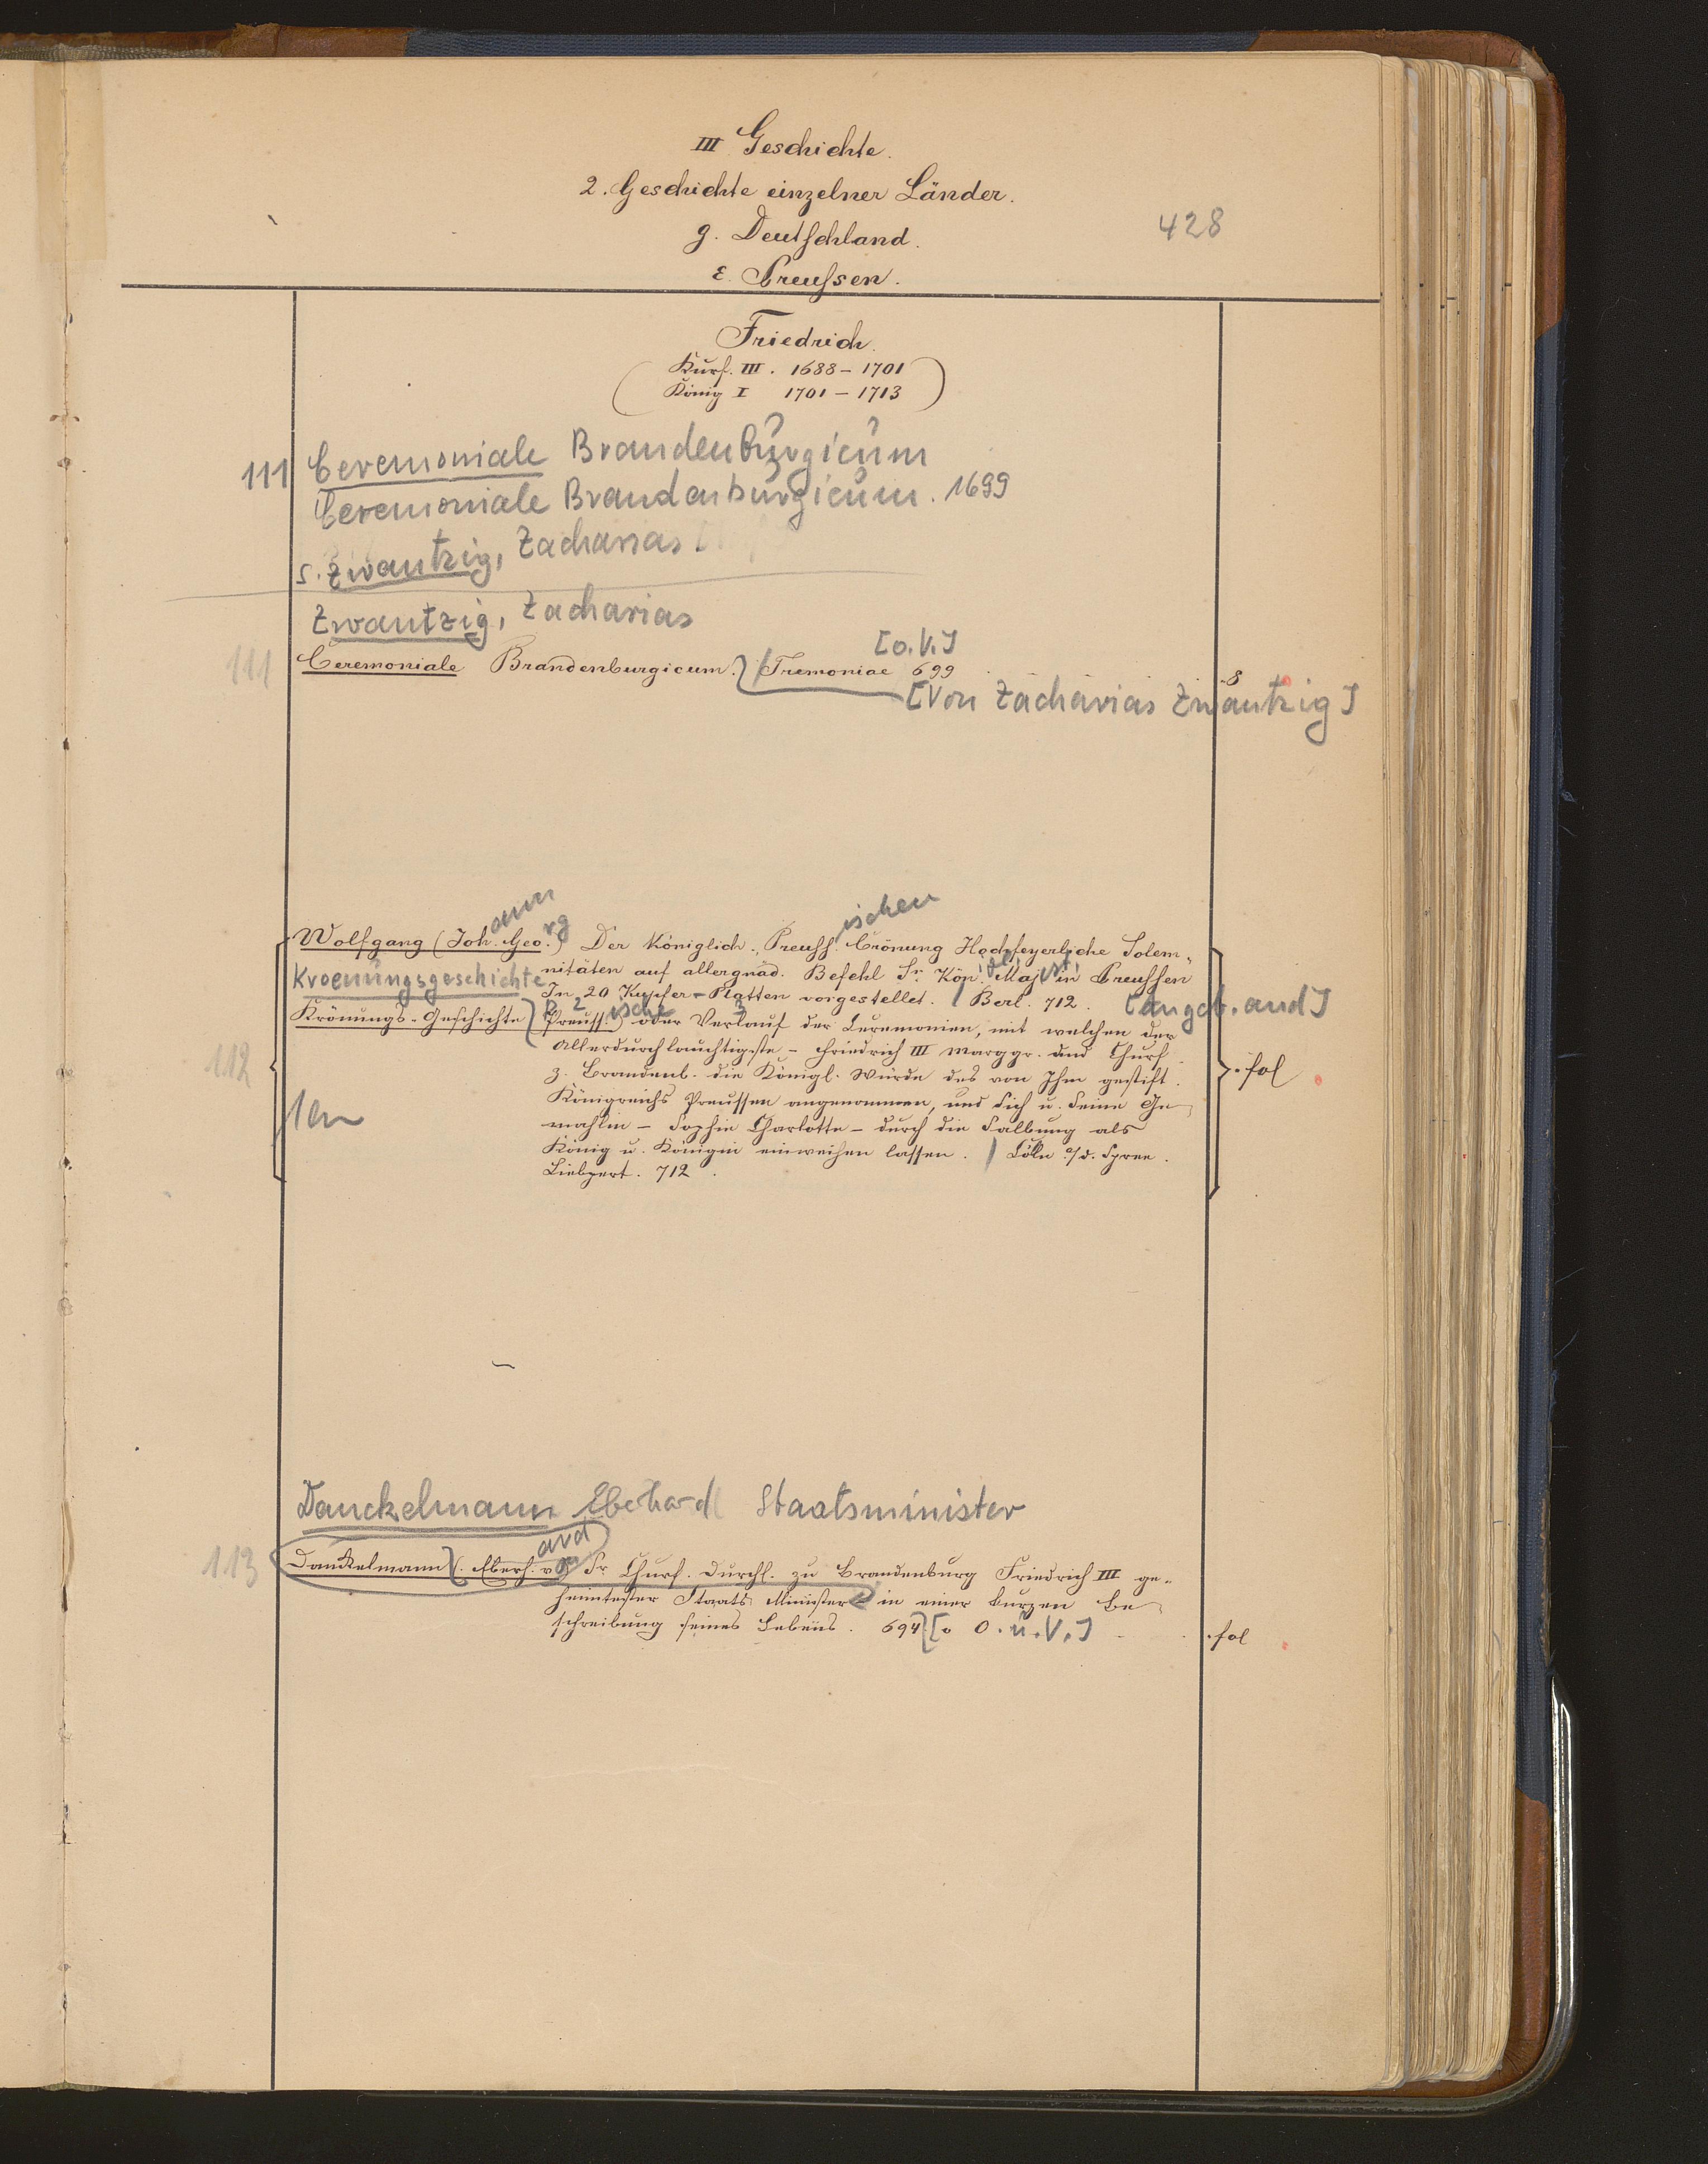 III Geschichte.
2. Geschichte einzelner Länder.
428
g. Deutschland.
ε. Preussen.
Friedrich.
(Kurf. III. 1688 – 1701
König I 1701 – 1713)
111 Ceremoniale Brandenburgicum
Ceremoniale Brandenburgicum. 1699
s. Zwantzig, Zacharias
Zwantzig, Zacharias
[o.V.]
111 Ceremoniale Brandenburgicum. / Tremoniae 699 8
[Von Zacharias Zwantzig]
Wolfgang (Johann Georg) Der Königlich. Preussischen Crönung Hochfeyerliche Solem-
Kroenungsgeschichte nitäten auf allergnäd. Befehl Sr. Kön. Majest. in Preussen
In 20 Kupfer-Platten vorgestellet. / Berl. 712. [angeb. and]
Krönungs-Geschichte (Preussische) oder Verlauf der Ceremonien, mit welchen der
112 Allerdurchlauchtigste – Friedrich III Marggr. und Churf. fol
z. Brandenb. die Königl. Würde des von Ihm gestift.
Königreichs Preussen angenommen, und sich u. seine Ge-
mahlin – Sophie Charlotte – durch die Salbung als
König u. Königin einweihen lassen. / Cöln a/d. Spree.
Liebpert. 712.
Danckelmann Eberhard Staatsminister
113 Danckelmann (Eberhard von) Sr Churf. Durchl. zu Brandenburg Friedrich III ge-
heimtester Staats Minister in einer kurzen Be-
schreibung seines Lebens. 694 [o O. u. V.] fol